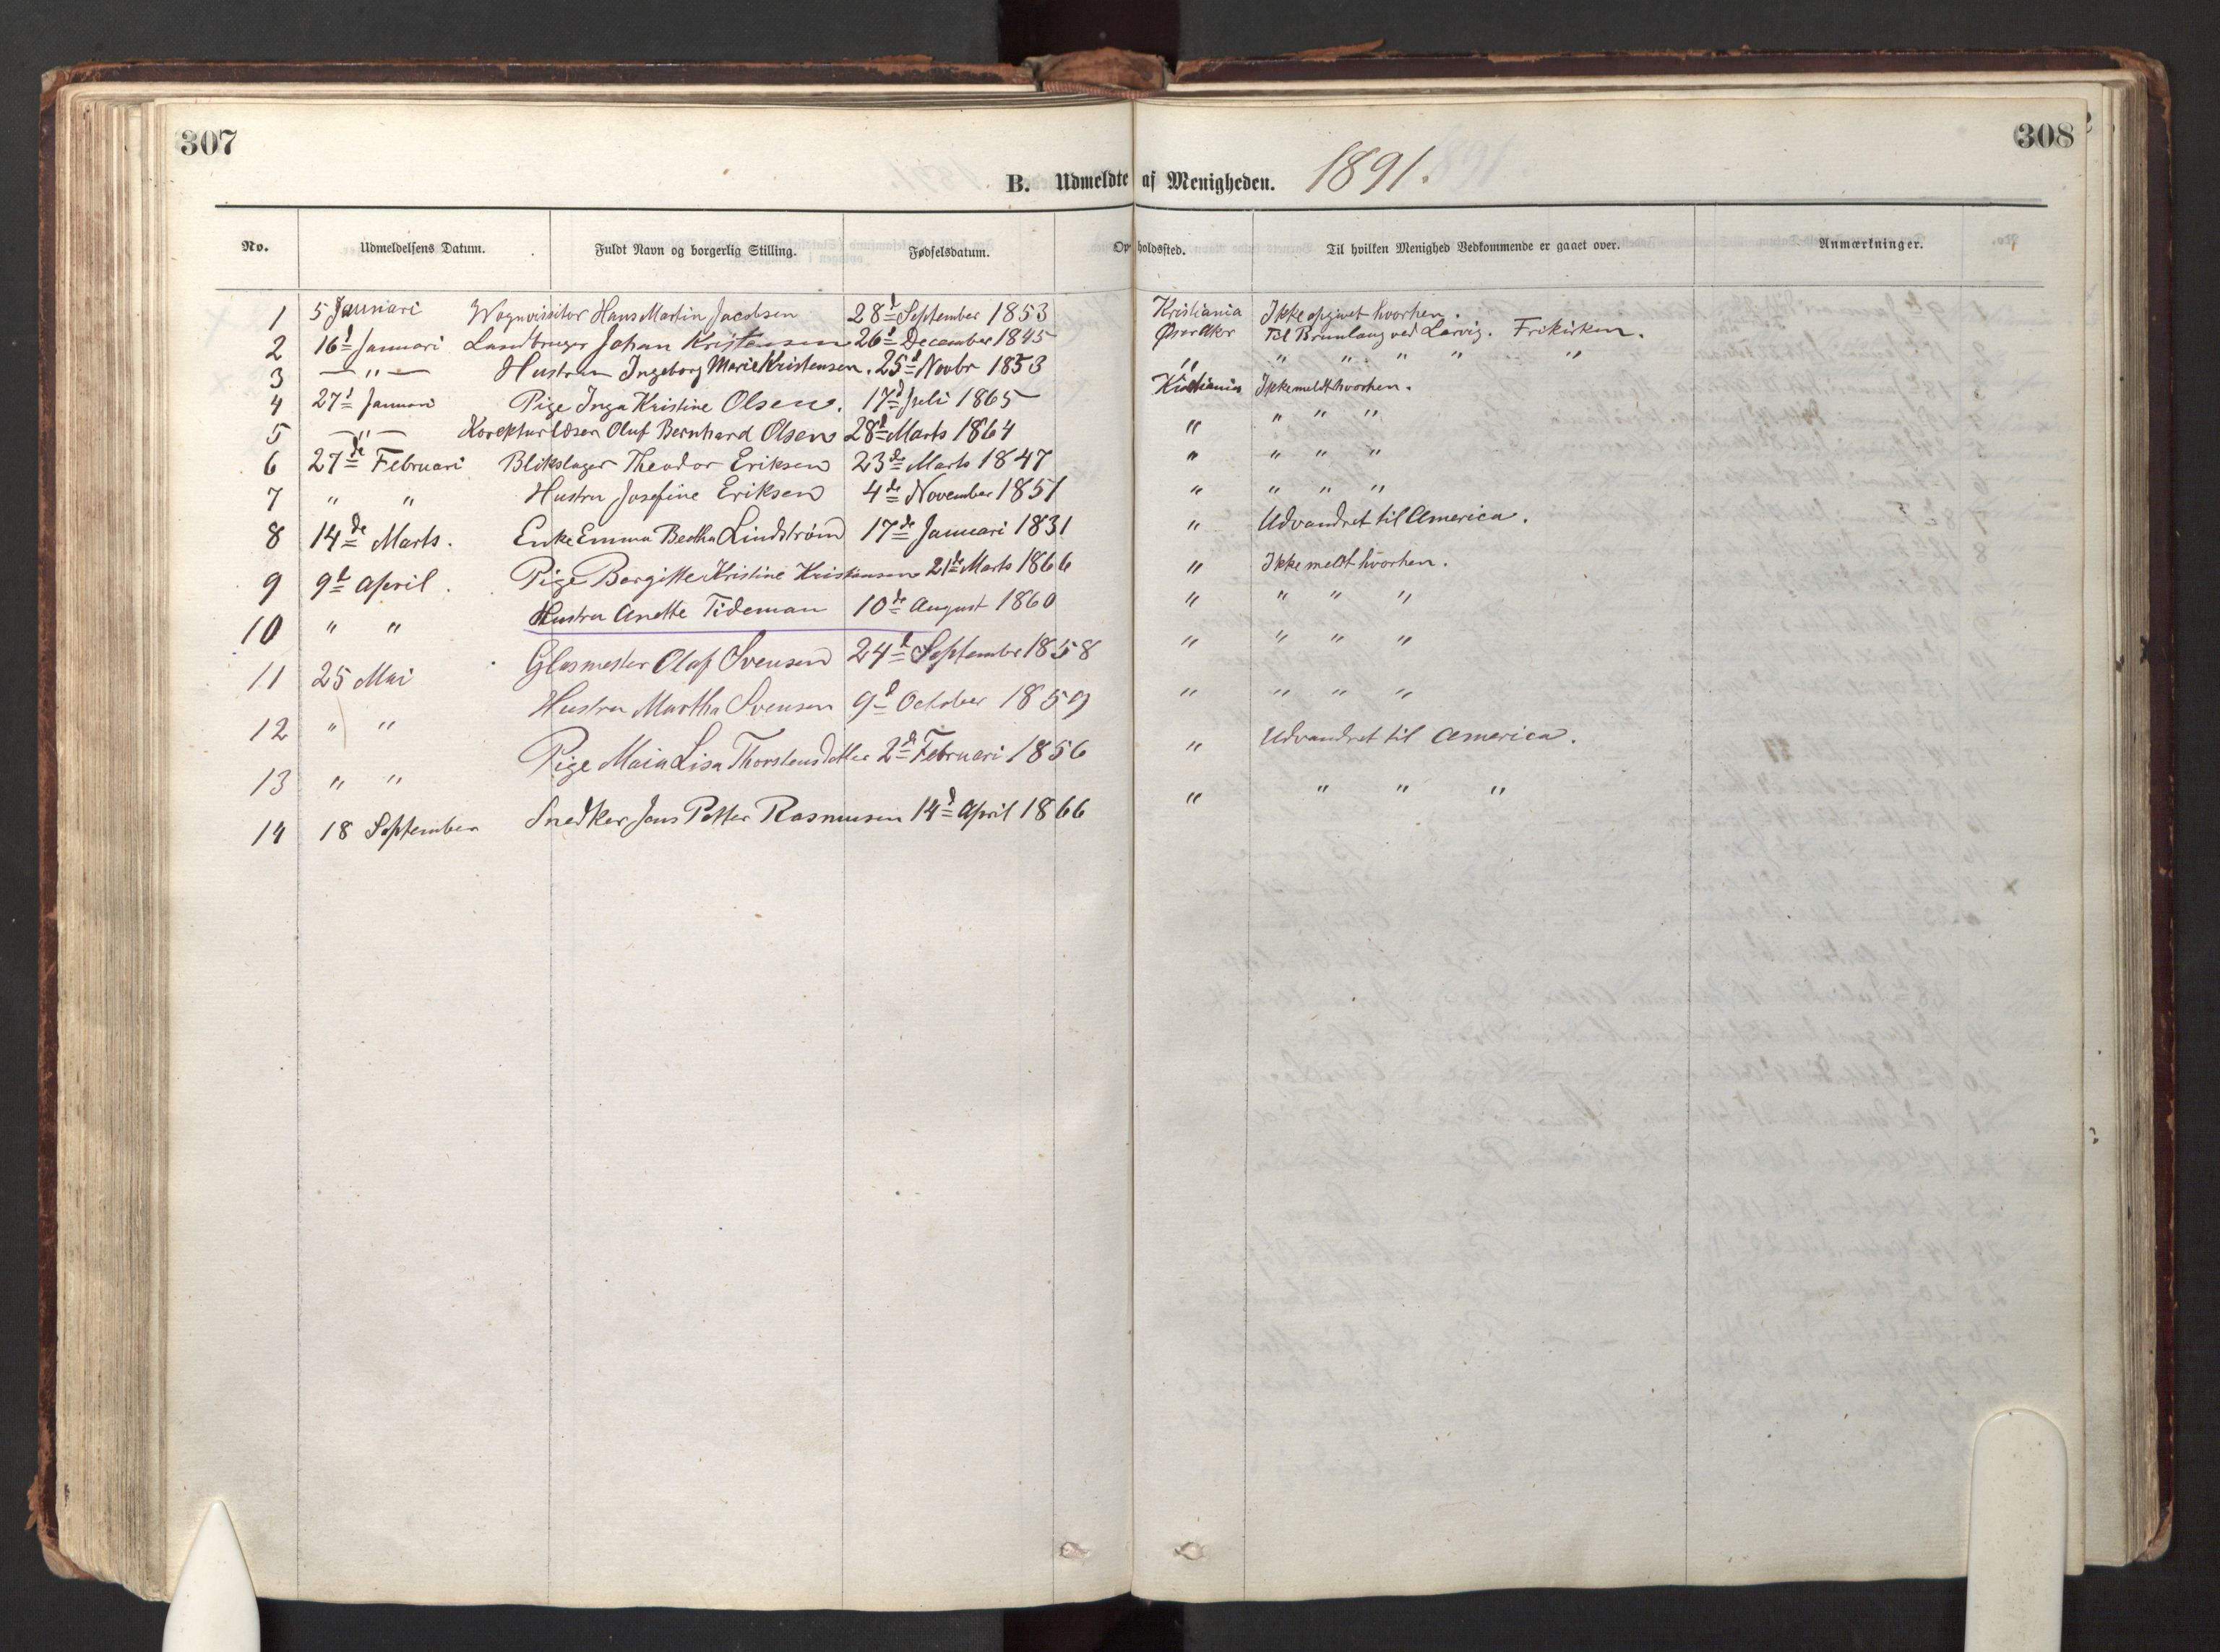 307
308
B. Udmeldte af Menigheden. 1891.
No. Udmeldelsens Datum. Fuldt Navn og borgerlig Stilling. Fødselsdatum. Opholdssted. Til hvilken Menighed Vedkommende er gaaet over. Anmærkninger.
1 5 Januari Vognvisitør Hans Martin Jacobsen 28d September 1853 Kristiania Ikke opgivet hvorhen.
2 16d Januari Landbruger Johan Kristensen 26d December 1845 Til Brunlaug ved Larvig. Frikirken.
3 — " — Hustru Ingeborg Marie Kristensen. 25d Novbr 1853 " " " " " "
4 27d Januari Pige Inga Kristine Olsen. 17d Juli 1865 Kristiania Ikke meldt hvorhen.
5 — " — Korekturlæser Oluf Bernhard Olsen 28d Marts 1864 " " " "
6 27de Februari Blikslager Theodor Eriksen 23de Marts 1847 " " " "
7 " " Hustru Josefine Eriksen 4de November 1851 " " " "
8 14de Marts. Enke Emma Bertha Lindstrøm 17de Januari 1831 " Udvandret til America.
9 9d April. Pige Borgitte Kristine Kristiansen 21de Marts 1866 " Ikke meldt hvorhen.
10 " " Hustru Anette Tideman 10de August 1860 " " " "
11 25 Mai Glasmester Olaf Svensen 24d September 1858 " " " "
12 " " Hustru Martha Svensen 9d October 1859 " " " "
13 " " Pige Maia Lisa Thorstensdatter 2de Februari 1856 " Udvandret til America.
14 18 September Snedker Jens Petter Rasmusen 14d April 1866 " " " "